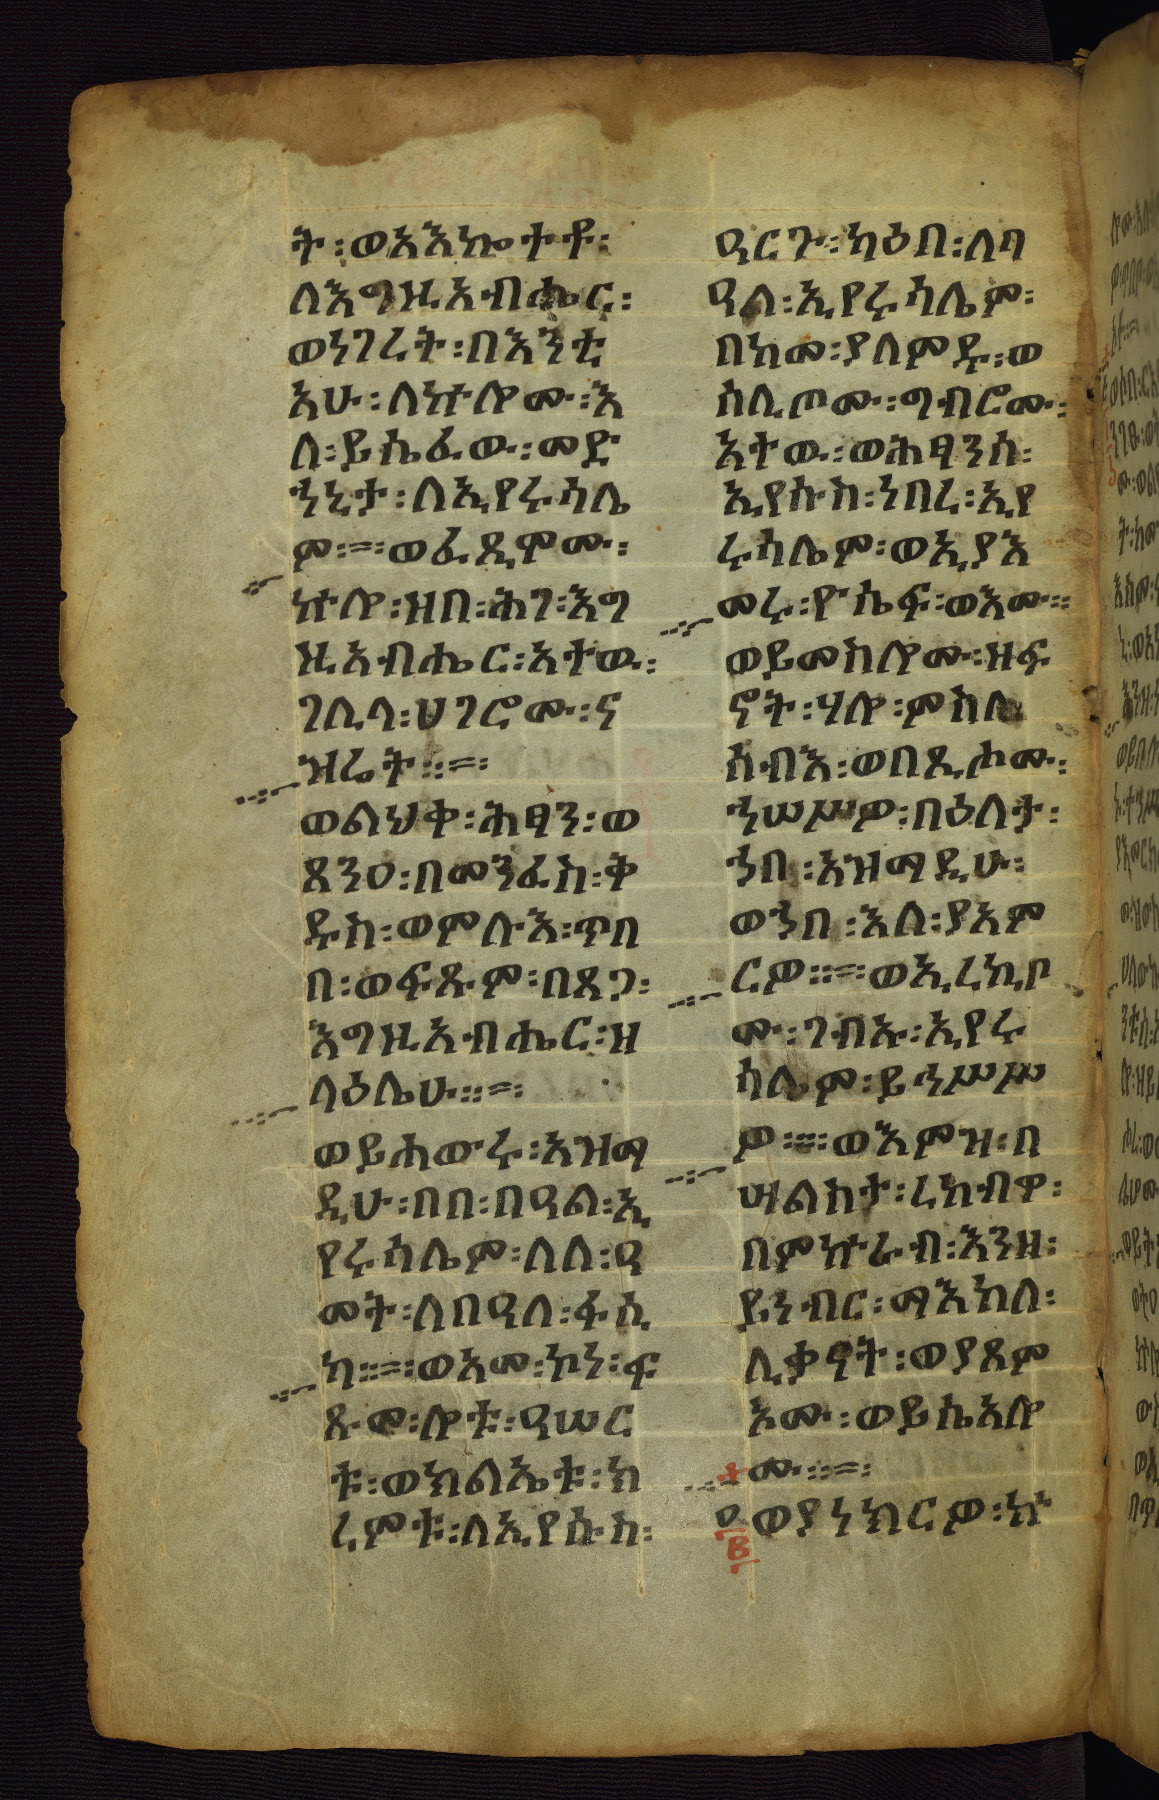 ት፡ወአእኰተቶ፡
ለእግዚአብሔር፡
ወነገረት፡በእንቲ
አሁ፡ለኵሎሙ፡እ
ለ፡ይሴፈው፡መድ
ኀኒታ፡ለኢየሩሳሌ
ም፡=፡ወፈጺሞሙ፡
ኵሎ፡ዝበ፡ሕገ፡እግ
ዚአብሔር፡አተዉ፡
ገሊላ፡ሀገሮሙ፡ና
ዝሬት፡፡=፡
ወልህቀ፡ሕፃን፡ወ
ጸንዐ፡በመንፈስ፡ቅ
ዱስ፡ወምሉእ፡ጥበ
በ፡ወፍጹም፡በጸጋ፡
እግዚአብሔር፡ዘ
ላዕሌሁ፡፡=፡
ወይሐውሩ፡አዝማ
ዲሁ፡በበ፡በዓል፡ኢ
የሩሳሌም፡ለለ፡ዓ
መት፡ለበዓለ፡ፋሲ
ካ፡፡=፡ወአመ፡ኮነ፡ፍ
ጹመ፡ሎቱ፡ዓሠር
ቱ፡ወክልኤቱ፡ክ
ረምቱ፡ለኢየሱስ፡
ዓርጉ፡ካዕበ፡ለባ
ዓል፡ኢየሩሳሌም፡
በከመ፡ያለምዱ፡ወ
ሰሊጦሙ፡ግብሮሙ፡
አተዉ፡ወሕፃንሰ፡
ኢየሱስ፡ነበረ፡ኢየ
ሩሳሌም፡ወኢያእ
መሩ፡ዮሴፍ፡ወእሙ፡፡
ወይመስሎሙ፡ዘፍ
ኖት፡ሃሎ፡ምስለ
ሰብእ፡ወበጺሖሙ፡
ኀሠሥዎ፡በዕለታ፡
ኀበ፡አዝማዲሁ፡
ወኀበ፡እለ፡ያአም
ርዎ፡፡=፡ወኢረኪቦ
ሙ፡ገብኡ፡ኢየሩ
ሳሌም፡ይኀሥሥ
ዎ፡፡፡ወእምዝ፡በ
ሣልስታ፡ረከብዎ፡
በምኵራብ፡እንዘ፡
ይነብር፡ማእከለ፡
ሊቃናት፡ወያጸም
ኦሙ፡ወይሴአሎ
ሙ፡፡=፡
ወያነክርዎ፡ኵ